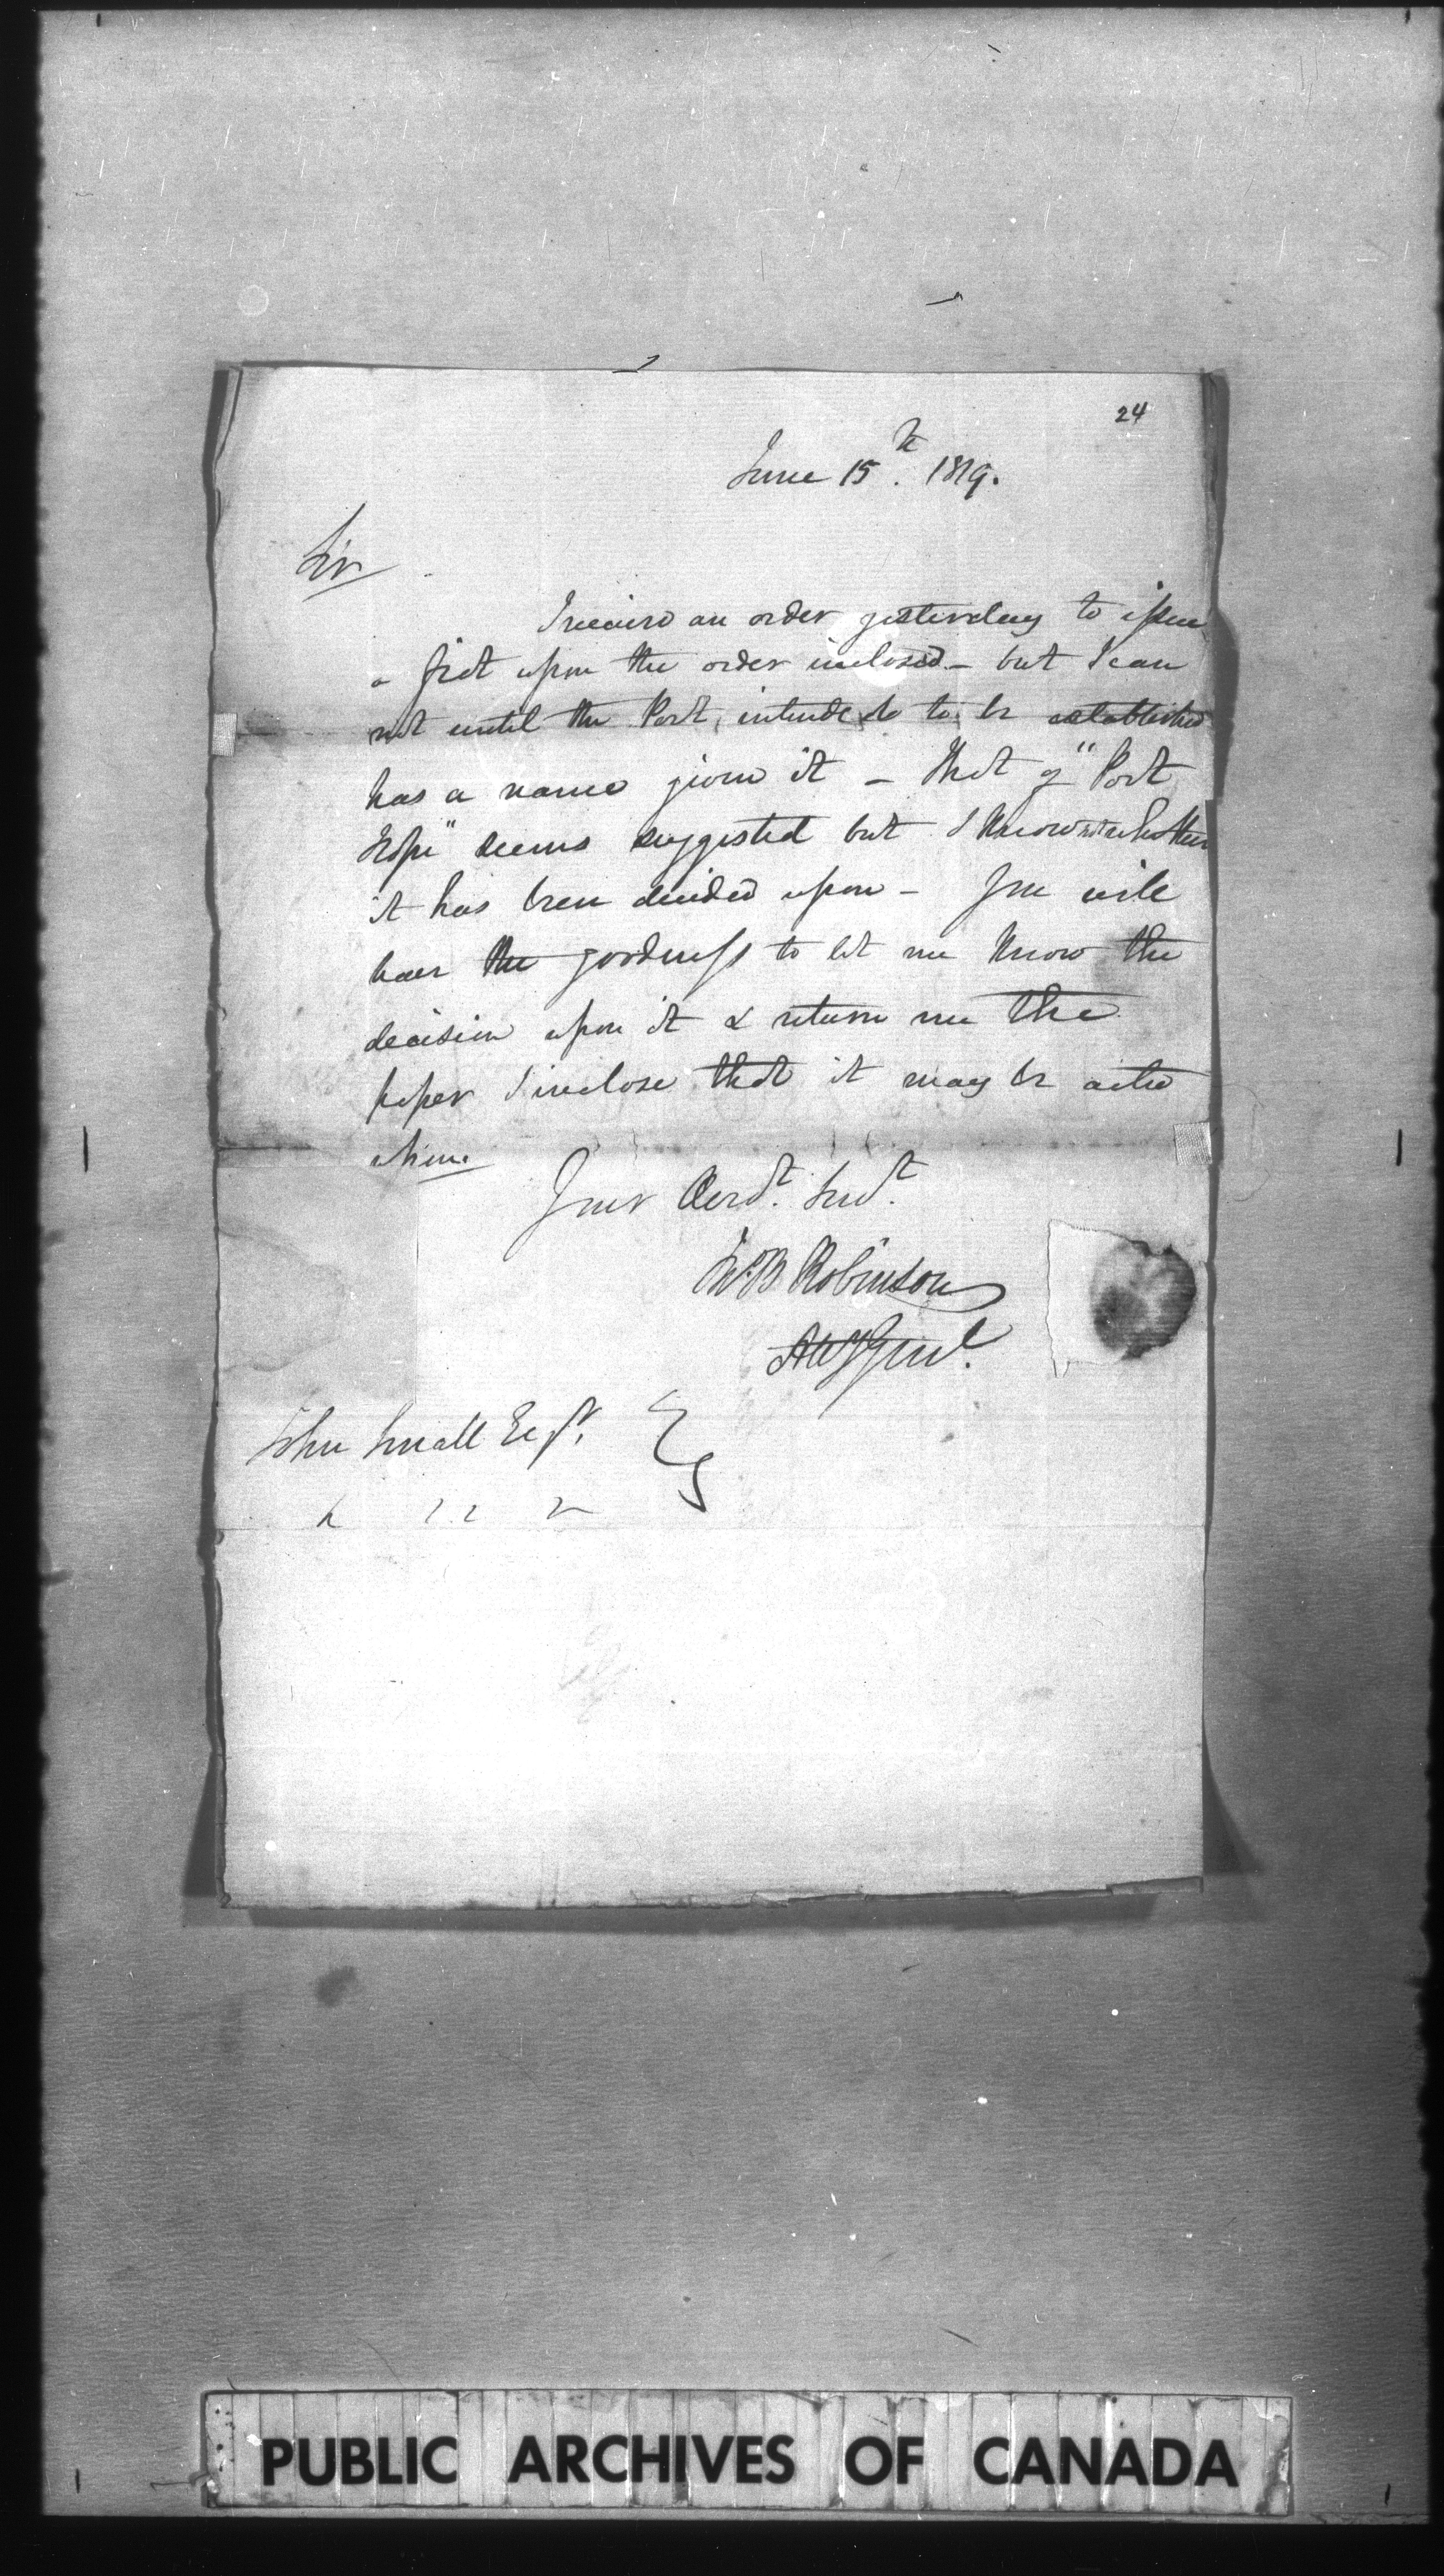 24
June 15th. 1819.
Sir
I received an order yesterday to issue
a fiat upon the order inclosed – but I can
not until the Port, intended to be established
has a name given it – that of "Port
Hope" seems suggested but I know not whether
it has been decided upon – You will
have the goodness to let me know the
decision upon it & return me the
paper I inclose that it may be acted
upon.
Your Obedt. Servt.
Robinson
Atty Genl.
John Small Esqr.
PUBLIC ARCHIVES OF CANADA